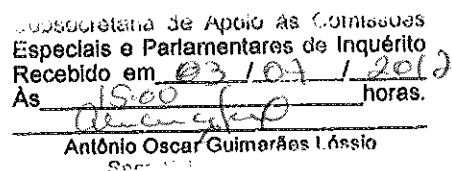 Subsecretaria de Apoio às Comissões
Especiais e Parlamentares de Inquérito
Recebido em 03 / 07 / 2012
Às 15:00 horas.
Antônio Oscar Guimarães Lóssio